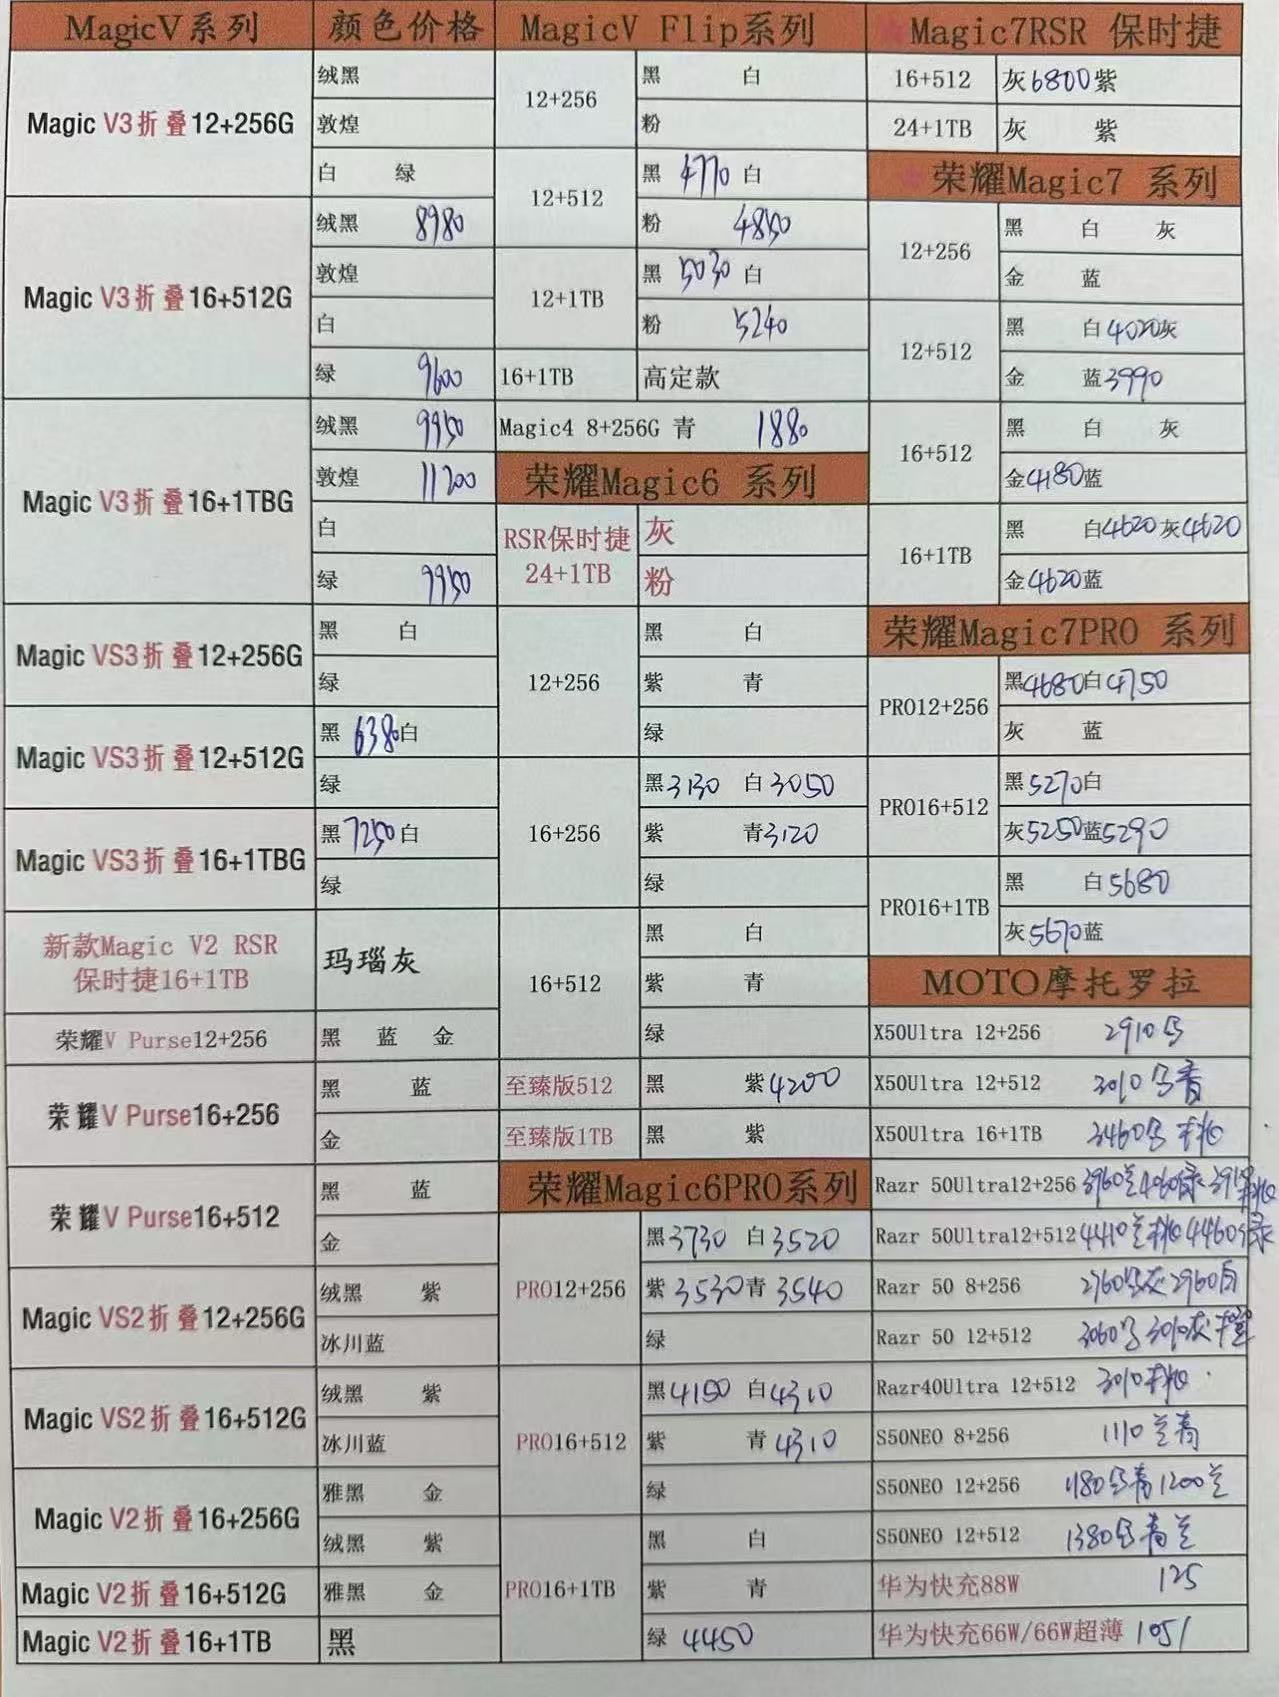 MagicV系列 颜色价格
Magic V3折叠12+256G
绒黑
敦煌
白 绿
Magic V3折叠16+512G
绒黑 8980
敦煌
白
绿 9600
Magic V3折叠16+1TBG
绒黑 9950
敦煌 11200
白
绿 9950
Magic VS3折叠12+256G
黑 白
绿
Magic VS3折叠12+512G
黑 6380白
绿
Magic VS3折叠16+1TBG
黑 7250白
绿
新款Magic V2 RSR
保时捷16+1TB
玛瑙灰
荣耀V Purse12+256
黑 蓝 金
荣耀V Purse16+256
黑 蓝
金
荣耀V Purse16+512
黑 蓝
金
Magic VS2折叠12+256G
绒黑 紫
冰川蓝
Magic VS2折叠16+512G
绒黑 紫
冰川蓝
Magic V2折叠16+256G
雅黑 金
绒黑 紫
Magic V2折叠16+512G
雅黑 金
Magic V2折叠16+1TB
黑
MagicV Flip系列
12+256
黑 白
粉
12+512
黑 4770 白
粉 4850
12+1TB
黑 5030 白
粉 5240
16+1TB 高定款
Magic4 8+256G 青 1880
荣耀Magic6 系列
RSR保时捷
24+1TB
灰
粉
12+256
黑 白
紫 青
绿
16+256
黑3130 白3050
紫 青3120
绿
16+512
黑 白
紫 青
绿
至臻版512 黑 紫4200
至臻版1TB 黑 紫
荣耀Magic6PRO系列
PRO12+256
黑3730 白3520
紫3530青3540
绿
PRO16+512
黑4150 白4310
紫 青4310
绿
PRO16+1TB
黑 白
紫 青
绿 4450
Magic7RSR 保时捷
16+512 灰6800紫
24+1TB 灰 紫
荣耀Magic7 系列
12+256
黑 白 灰
金 蓝
12+512
黑 白4020灰
金 蓝3990
16+512
黑 白 灰
金4180蓝
16+1TB
黑 白4620灰4620
金4620蓝
荣耀Magic7PRO 系列
PRO12+256
黑4680白4750
灰 蓝
PRO16+512
黑5270白
灰5250蓝5290
PRO16+1TB
黑 白5680
灰5670蓝
MOTO摩托罗拉
X50Ultra 12+256 2910
X50Ultra 12+512 3010 青
X50Ultra 16+1TB 3460 桃
Razr 50Ultra12+256 3960兰4060绿 桃
Razr 50Ultra12+512 4410兰桃4460绿
Razr 50 8+256 2760 灰2960
Razr 50 12+512 3060 3010灰
Razr40Ultra 12+512 3010桃
S50NEO 8+256 1110兰青
S50NEO 12+256 1180 青1200兰
S50NEO 12+512 1380 青兰
华为快充88W 125
华为快充66W/66W超薄 105/